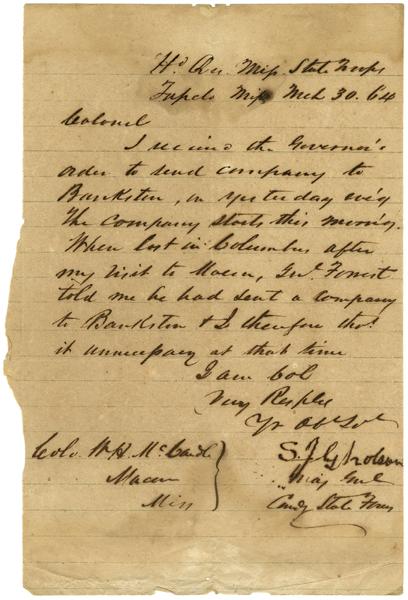 Hd Qrs Miss State Troops
Tupelo Miss Mch 30. 64
Colonel
I recieved the Governor's
order to send company to
Bankston, on yesterday ev'g
The company starts this morn'g.
When last in Columbus after
my visit to Macon, Genl Forrest
told me he had sent a company
to Bankston & I therefore tho't
it unnecessary at that time
I am Col
Very Resply
Yr Obt Svt
S. J. Gholson
Maj Genl
Comdg State Forces
Colo. W. H. McCardle
Macon
Miss